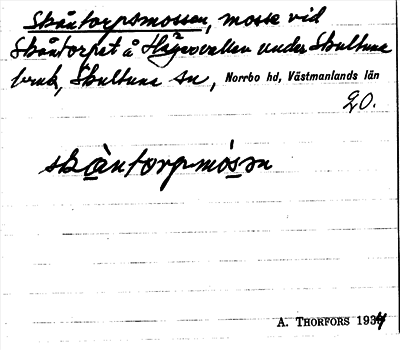 Skåntorpsmossen, mosse vid
Skåntorpet å Högsvallen under Skultuna
bruk, Skultuna sn, Norrbo hd, Västmanlands län
20.
skàntorpmósən
A. THORFORS 1934